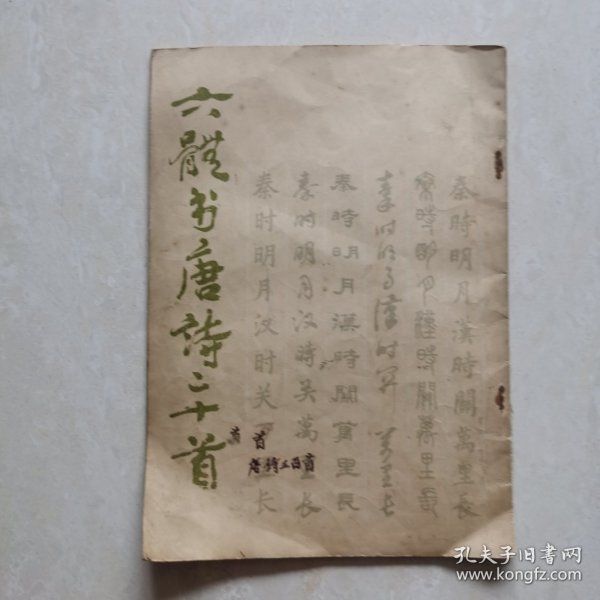 秦時明月漢時關萬里長
秦時明月漢時關萬里長
秦时明月漢时关万里长
秦時明月漢時關萬里長
秦时明月汉時关萬里長
秦时明月汉时关长
六體书唐詩二十首
首 首
唐詩三百首
孔夫子旧书网
www.kongfz.com